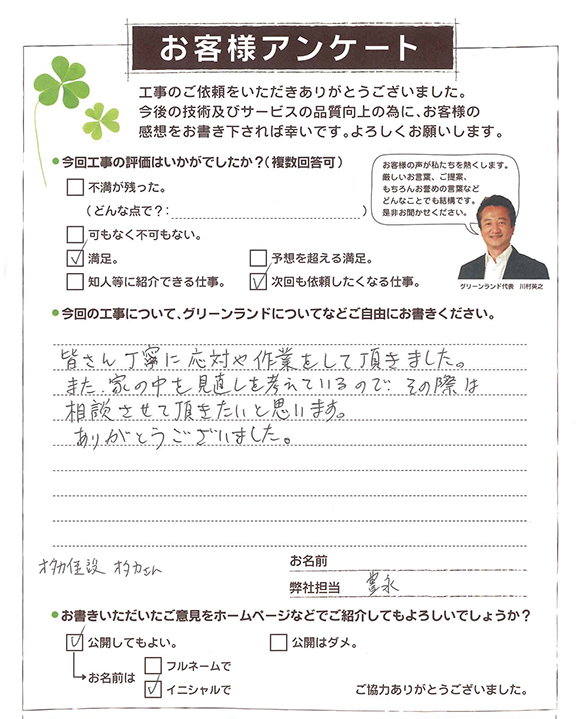 お客様アンケート
工事のご依頼をいただきありがとうございました。
今後の技術及びサービスの品質向上の為に、お客様の
感想をお書き下されば幸いです。よろしくお願いします。
●今回工事の評価はいかがでしたか?(複数回答可)
お客様の声が私たちを熱くします。
厳しいお言葉、ご提案、
もちろんお誉めの言葉など
どんなことでも結構です。
是非お聞かせください。
グリーンランド代表 川村英之
□不満が残った。
(どんな点で?: )
□可もなく不可もない。
☑満足。 □予想を超える満足。
□知人等に紹介できる仕事。 ☑次回も依頼したくなる仕事。
●今回の工事について、グリーンランドについてなどご自由にお書きください。
皆さん丁寧に応対や作業をして頂きました。
また、家の中を見直しを考えているので、その際は
相談させて頂きたいと思います。
ありがとうございました。
お名前
オタカ住設 オタカさん
弊社担当 豊永
●お書きいただいたご意見をホームページなどでご紹介してもよろしいでしょうか?
☑公開してもよい。 □公開はダメ。
お名前は □フルネームで
☑イニシャルで
ご協力ありがとうございました。